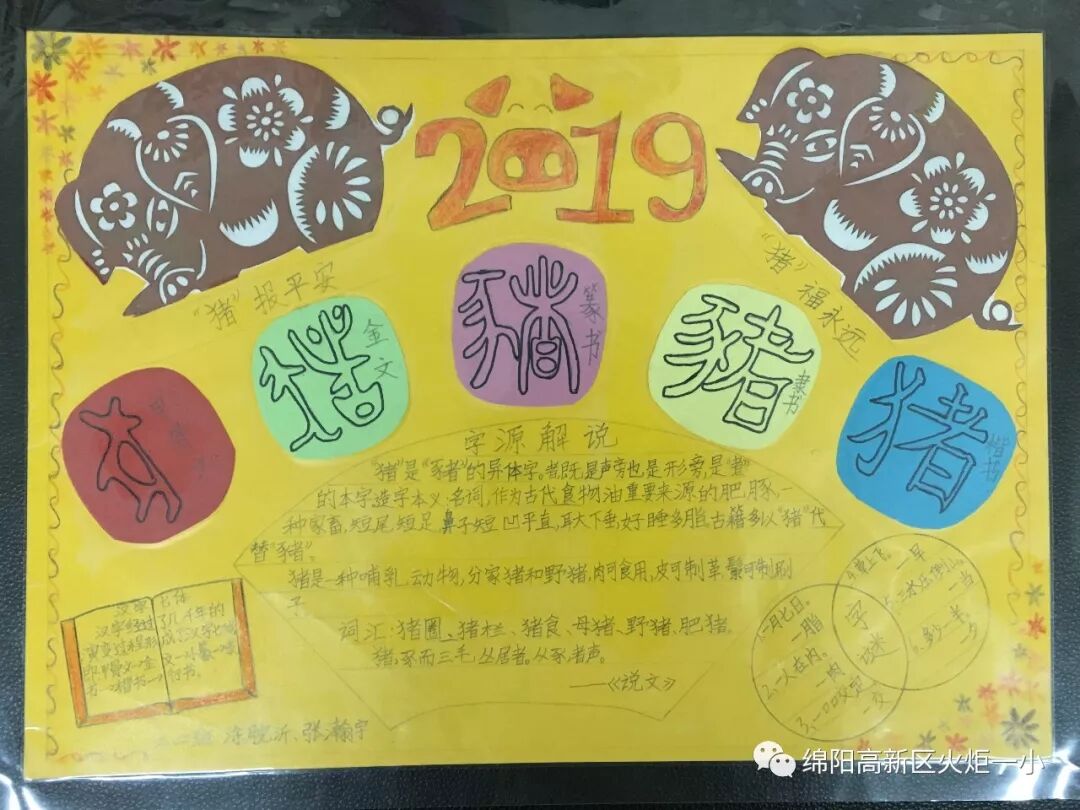 2019
"猪"报平安
"猪"福永远
金文
篆书
猪
隶书
猪
楷书
字源解说
"猪"是"豬"的异体字。者,既是声旁也是形旁,是"煮"
的本字。造字本义:名词,作为古代食物油重要来源的肥豚,一
种家畜,短尾短足,鼻子短凹平直,耳大下垂,好睡多脂。古籍多以"猪"代
替"豬"。
猪是一种哺乳动物,分家猪和野猪,肉可食用,皮可制革,鬃可制刷
子。
词汇:猪圈、猪栏、猪食、母猪、野猪、肥猪。
猪,豕而三毛丛居者。从豕,者声。
——《说文》
汉字
汉字经过
了几千年的
演变过程形
书→楷书→
行书。
字
谜
1.一月七日。
—脂
2.一人在内。
—肉
—早
5.三水压倒山。
—当
6.多少一半。
张瀚宇
绵阳高新区火炬一小